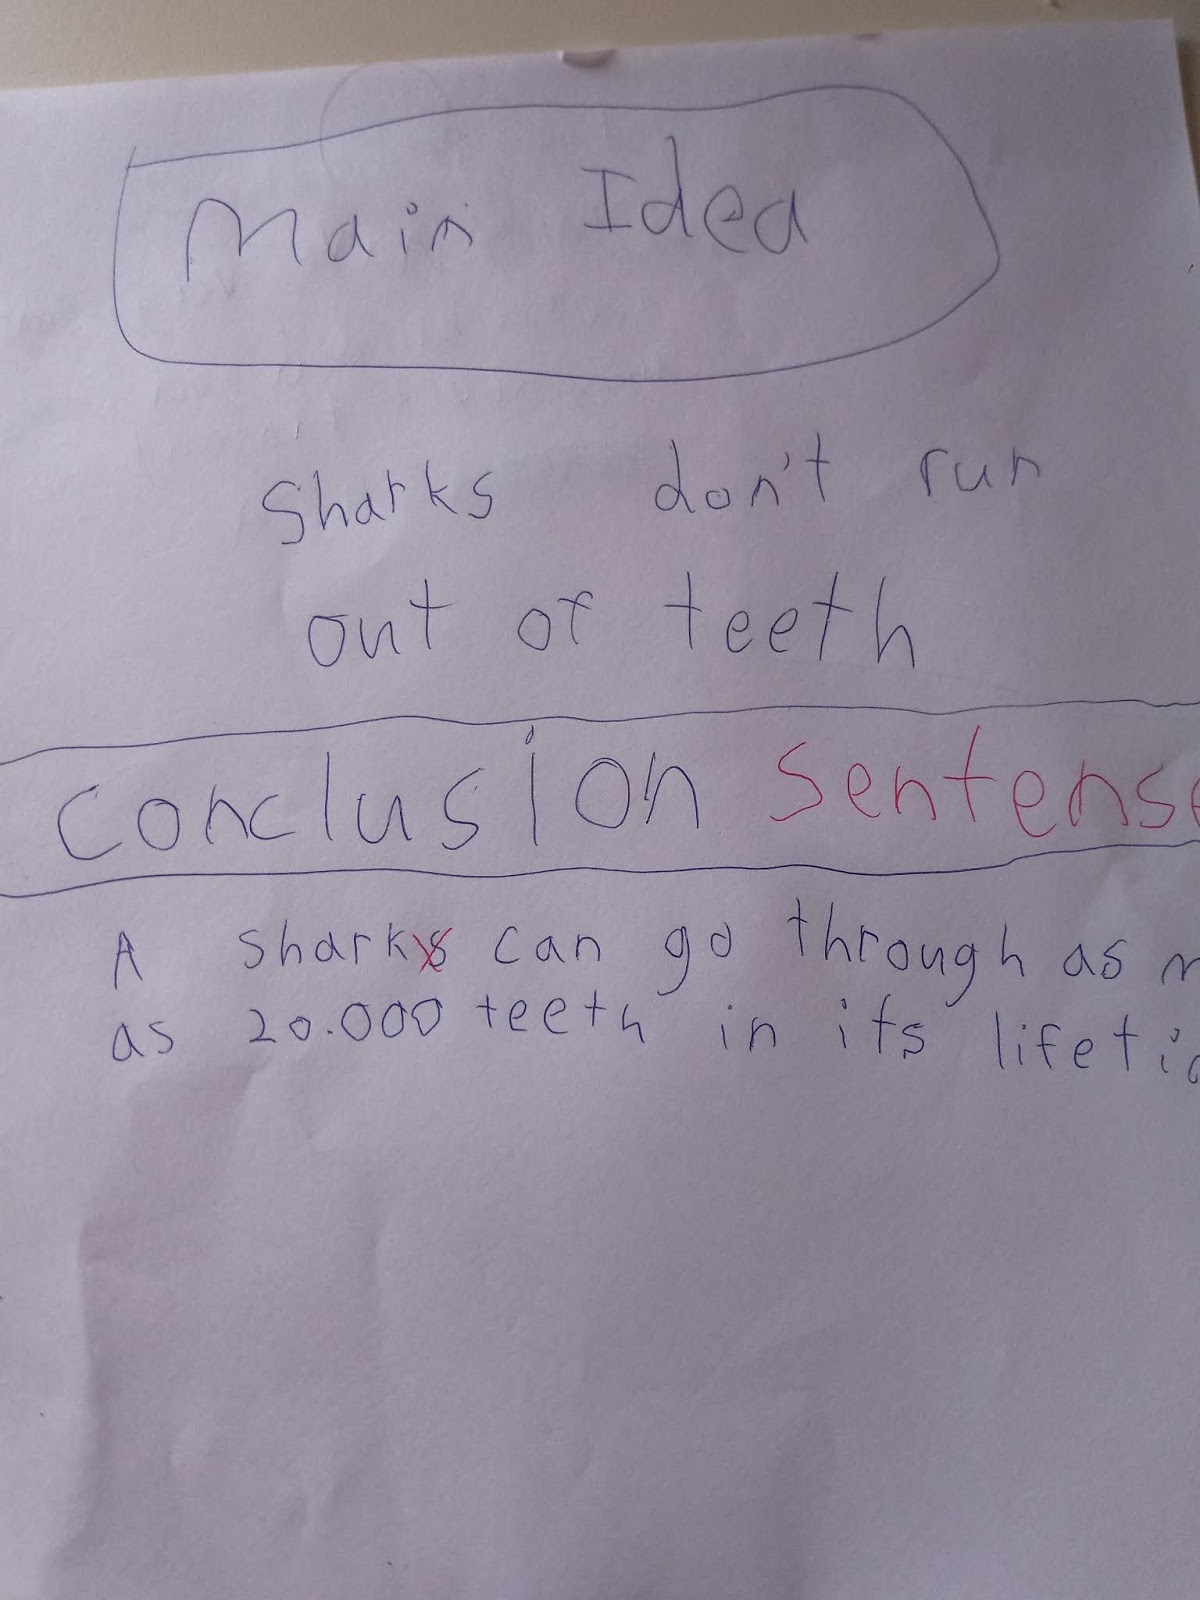 Main Idea
Sharks don't run
out of teeth
Conclusion Sentense
A shark can go through as
as 20.000 teeth in its